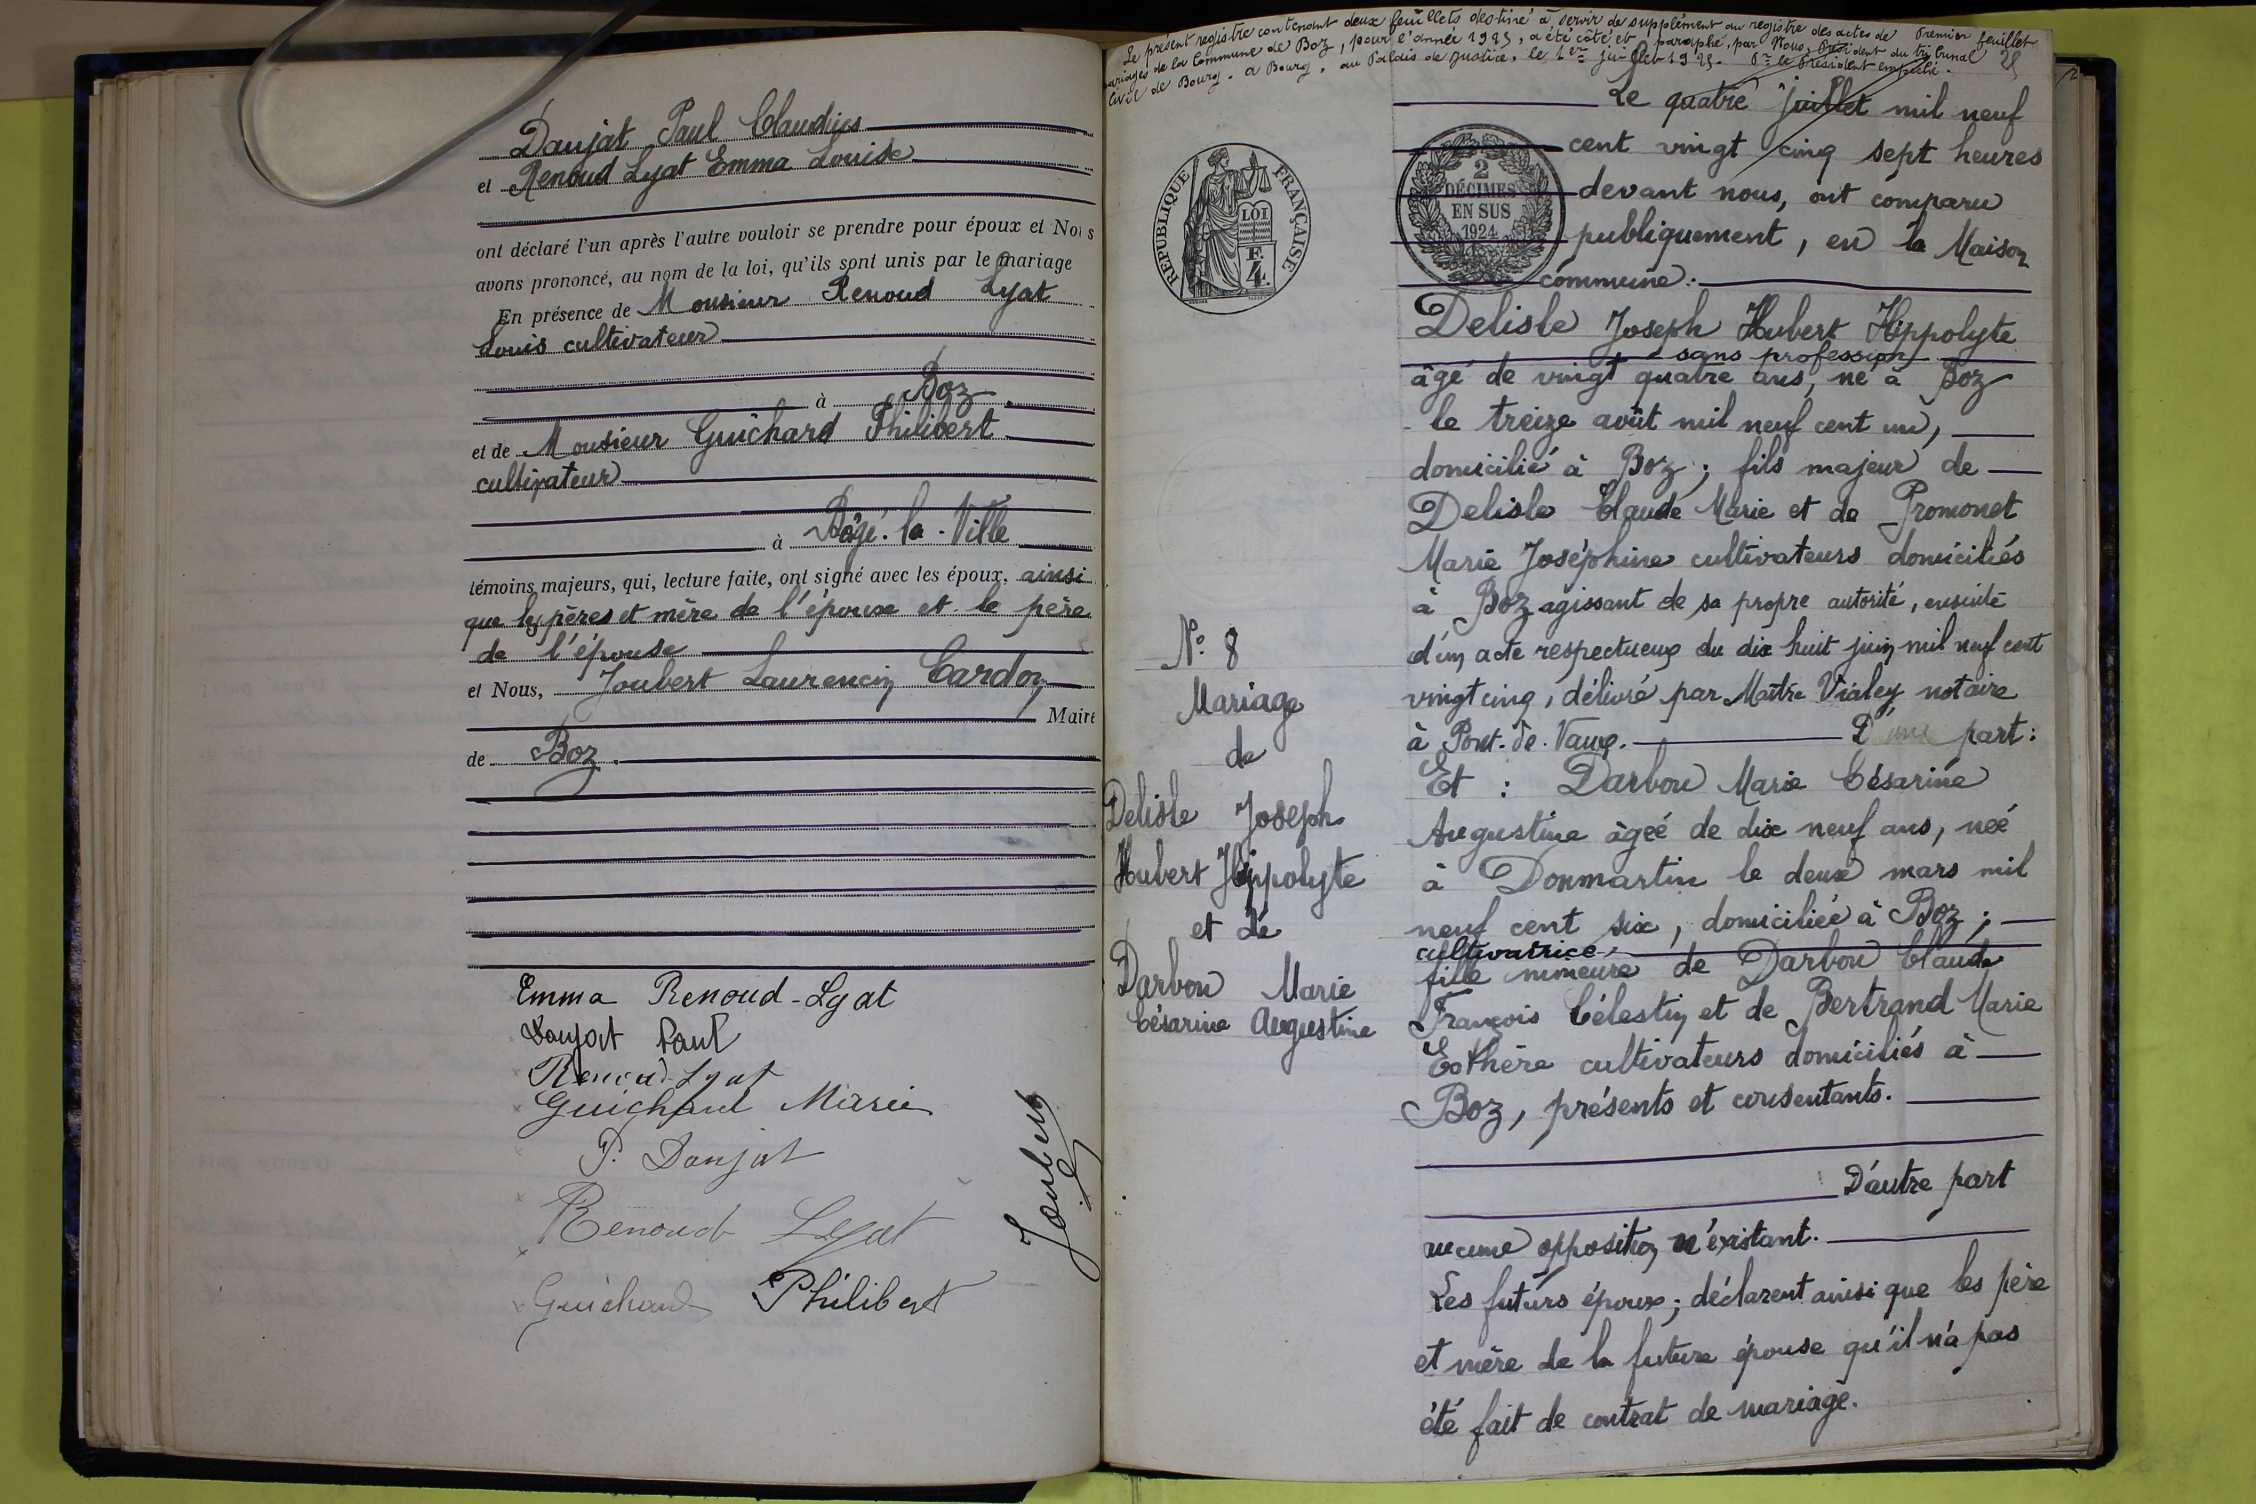 Daujat Paul Claudius
et Renoud Lyat Emma Louise
ont déclaré l'un après l'autre vouloir se prendre pour époux et Nous
avons prononcé, au nom de la loi, qu'ils sont unis par le mariage
En présence de Monsieur Renoud Lyat
Louis cultivateur
à Boz
et de Monsieur Guichard Philibert
cultivateur
à Bâgé-la-Ville
témoins majeurs, qui, lecture faite, ont signé avec les époux, ainsi
que les pères et mère de l'épouse et le père
de l'épouse
et Nous, Joubert Laurencin Cardon
Maire
de Boz.
Emma Renoud-Lyat
Daujat Paul
Renoud-Lyat
Guichard Marie
P. Daujat
Renoud Lyat
Guichard Philibert
Joubert
Le présent registre contenant deux feuillets destiné à servir de supplément au registre des actes de Premier feuillet
mariages de la Commune de Boz, pour l'année 1925, a été côté et paraphé, par Nous, Président du tribunal
Civil de Bourg. a Bourg, au Palais de Justice, le 1er juillet 1925. Pr le Président empêché.
RÉPUBLIQUE FRANÇAISE
LOI
F.
4.
2
DÉCIMES
EN SUS
1924
Le quatre juillet mil neuf
cent vingt cinq sept heures
devant nous, ont comparu
publiquement, en la Maison
commune:
Delisle Joseph Hubert Hippolyte
sans profession
âgé de vingt quatre ans, né à Boz
le treize août mil neuf cent un,
domicilié à Boz; fils majeur de
Delisle Claude Marie et de Promonet
Marie Joséphine cultivateurs domiciliés
à Boz agissant de sa propre autorité, ensuite
d'un acte respectueux du dix huit juin mil neuf cent
vingt cinq, délivré par Maître Vialey notaire
à Pont-de-Vaux. D'une part:
Et: Darbon Marie Césarine
Augustine âgée de dix neuf ans, née
à Donmartin le deux mars mil
neuf cent six, domiciliée à Boz;
cultivatrice,
fille mineure de Darbon Claude
François Célestin et de Bertrand Marie
Esthère cultivateurs domiciliés à
Boz, présents et consentants.
D'autre part
aucune opposition n'éxistant.
Les futurs époux; déclarent ainsi que les père
et mère de la future épouse qu'il n'a pas
été fait de contrat de mariage.
No 8
Mariage
de
Delisle Joseph
Hubert Hippolyte
et de
Darbon Marie
Césarine Augustine